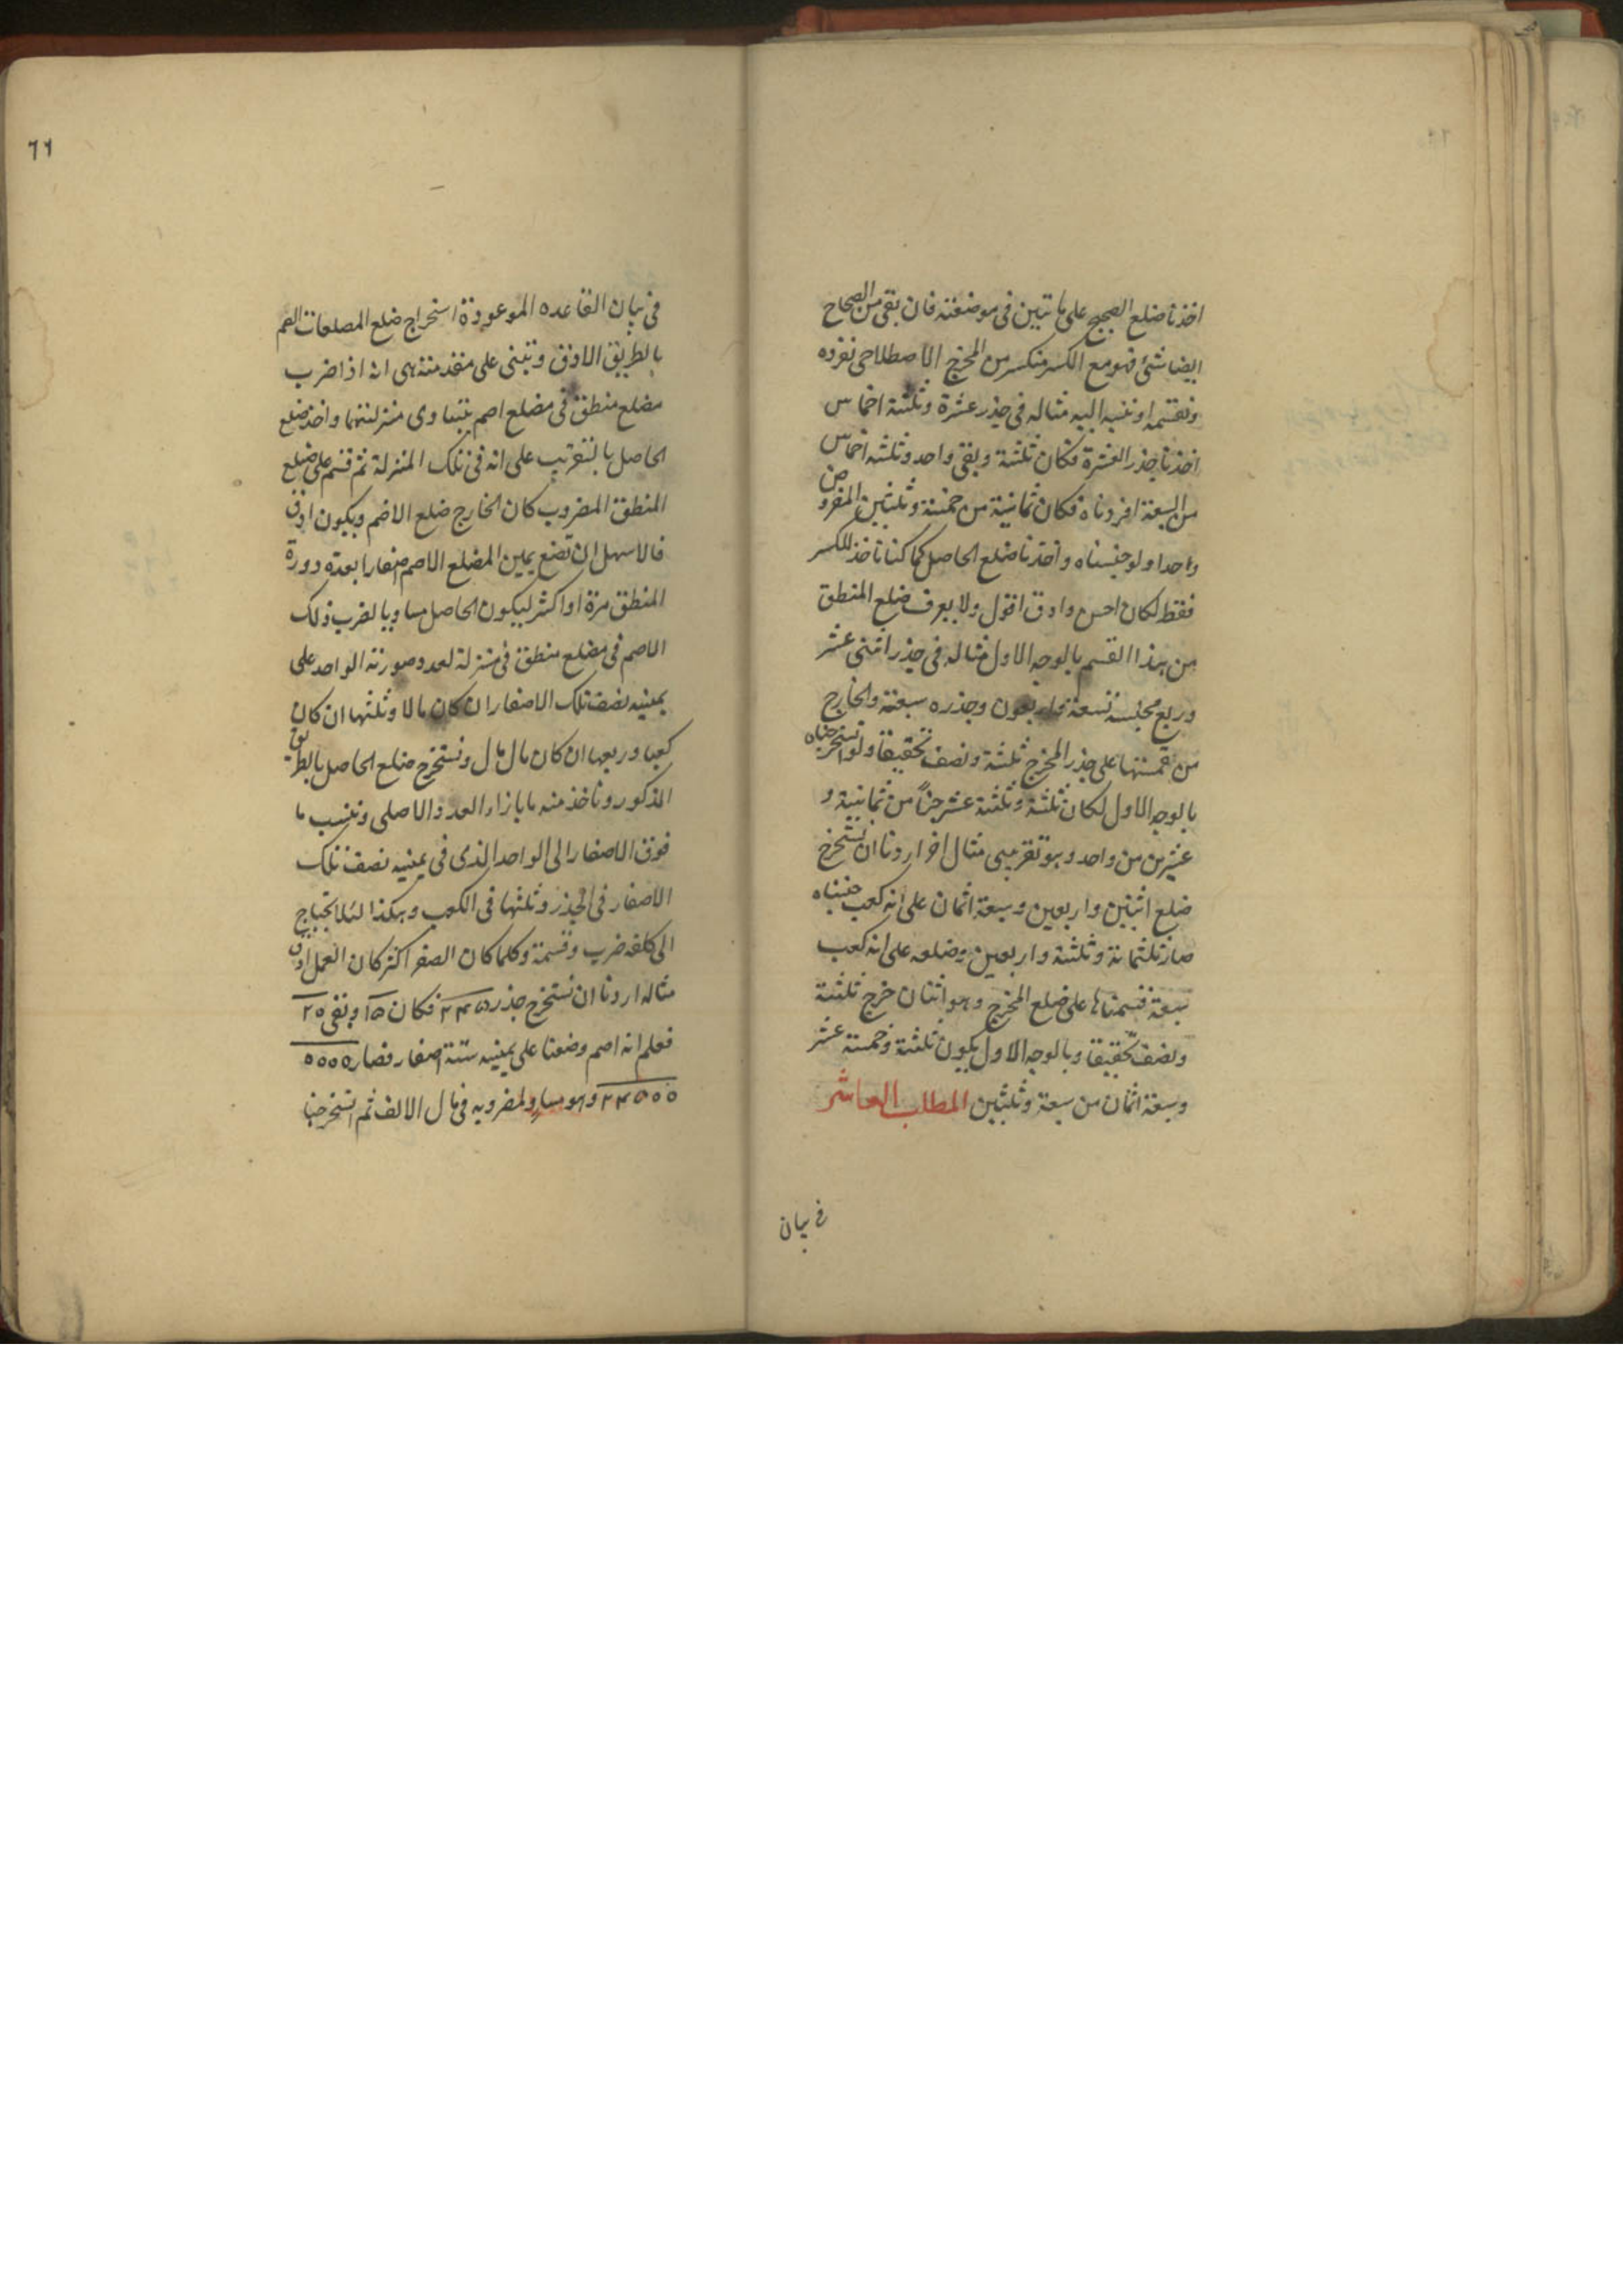 اخذنا ضلع الصحيح على ما تبين في موضعته فان بقى من الصحاح
ايضا شئ فهو مع الكسر منكسر من المخرج الاصطلاحى نفرده
ونقسمه او ننسبه اليه مثاله فى جذر عشرة وثلثة اخماس
اخذنا جذر العشرة فكان ثلثة وبقى واحد وثلثه اخماس
من السبعة افردناه فكان ثمانية من خمسة وثلثين المفروض
واحدا ولو جنسناه واخذنا ضلع الحاصل كما كنا ناخذ للكسر
فقط لكان احسن وادق اقول ولا يعرف ضلع المنطق
من هذا القسم بالوجه الاول مثاله فى جذر اثنى عشر
وربع مجنسه تسعة واربعون وجذره سبعة والخارج
من قسمتها على جذر المخرج ثلثة ونصف تحقيقا ولو استخرجناه
بالوجه الاول لكان ثلثة وثلثة عشر جزأ من ثمانية و
عشرين من واحد وهو تقريبى مثال اخر اردنا ان نستخرج
ضلع اثنين واربعين وسبعة اثمان على انه كعب جنسناه
صار ثلثمائة وثلثة واربعين وضلعه على انه كعب
سبعة قسمناها على ضلع المخرج وهو اثنان خرج ثلثة
ونصف تحقيقا وبالوجه الاول يكون ثلثة وخمسة عشر
وسبعة اثمان من سبعة وثلثين المطلب العاشر
فى بيان
٦٦
فى بيان القاعده الموعودة استخراج ضلع المضلعات الصم
بالطريق الادق وتبنى على مقدمة هى انه اذا ضرب
مضلع منطق فى مضلع اصم بتساوى منزلتهما واخذ ضلع
الحاصل بالتقريب على انه فى تلك المنزلة ثم قسم على ضلع
المنطق المضروب كان الخارج ضلع الاصم ويكون ادق
فالاسهل ان تضع يمين المضلع الاصم صفارا بعدة دورة
المنطق مرة او اكثر ليكون الحاصل مساويا لضرب ذلك
الاصم فى مضلع منطق فى منزلة لعدد صورته الواحد على
يمينه نصف تلك الاصفار ان كان مالا وثلثها ان كان
كعبا وربعها ان كان مال مال ونستخرج ضلع الحاصل بالطريق
المذكور وناخذ منه ما بازاء العدد الاصلى وننسب ما
فوق الاصفار الى الواحد الذى فى يمينه نصف تلك
الاصفار فى الجذر وثلثها فى الكعب وهكذا لئلا يحتاج
الى كلفة ضرب وقسمة وكلما كان الصفر اكثر كان العمل ادق
مثاله اردنا ان نستخرج جذر ٢٤٥ فكان ١٥ وبقى ٢٠
فعلم انه اصم وضعنا على يمينه ستة اصفار فصار ٥٥٥٥
٢٤٥٥٥ وهو مساو لمضروبه فى مال الالف ثم استخرجنا